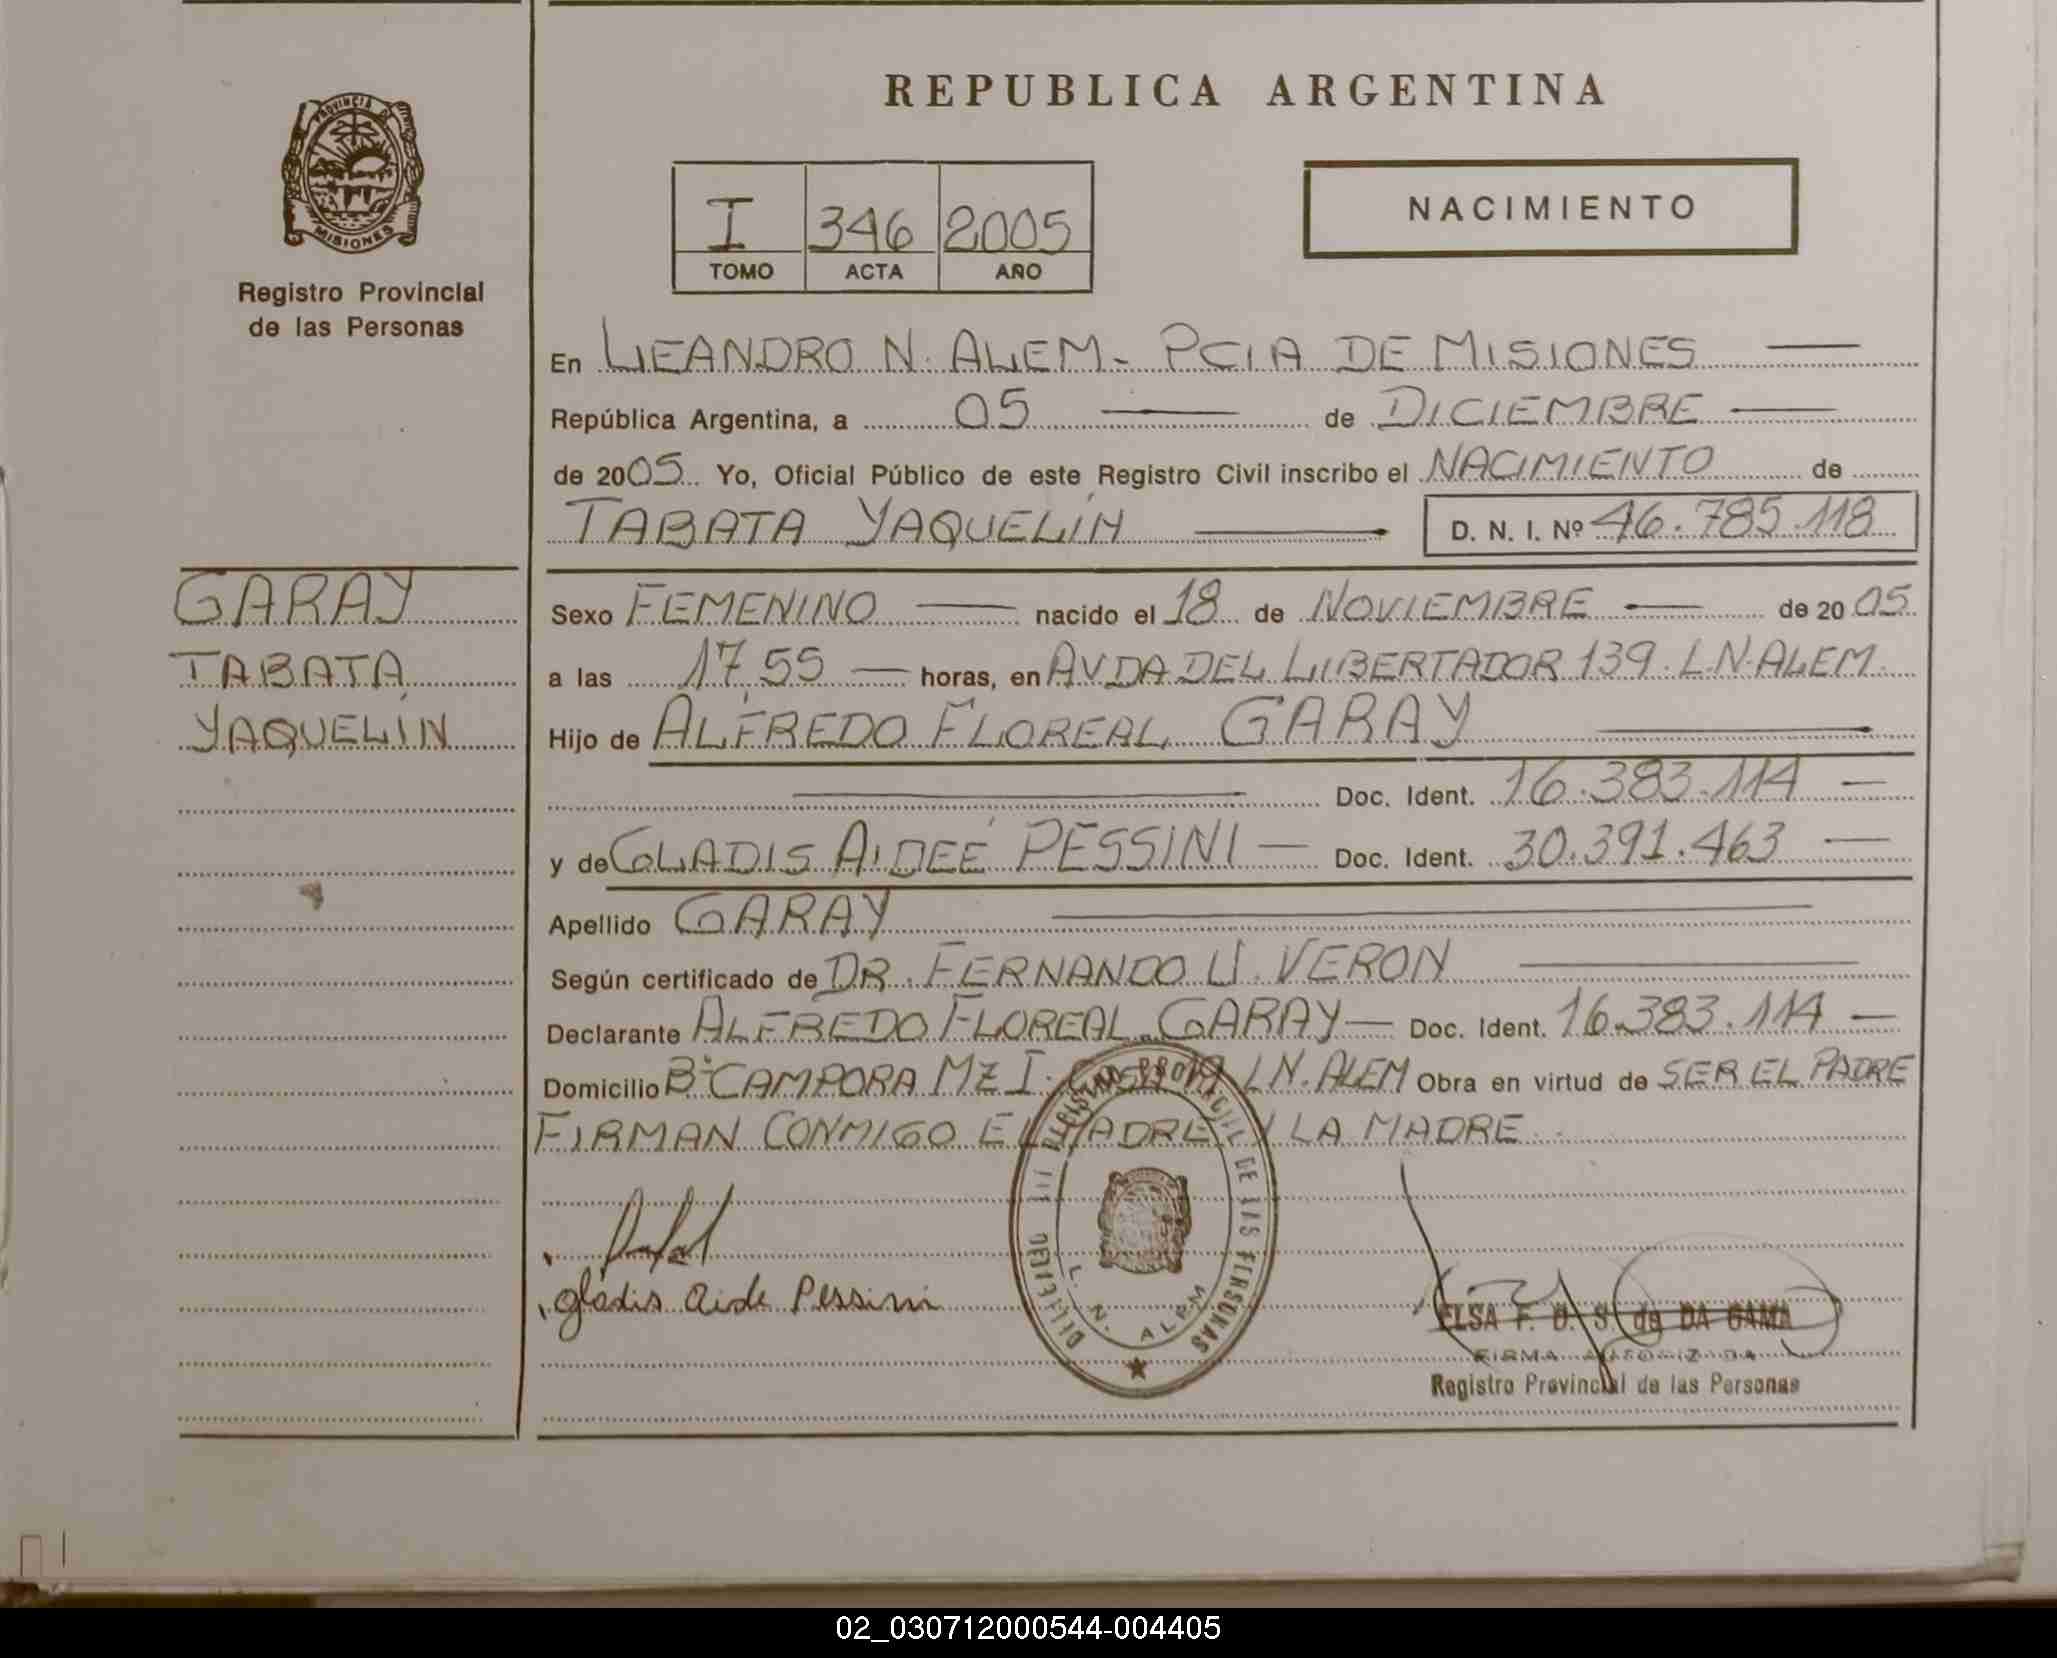 REPUBLICA ARGENTINA
PROVINCIA D MISIONES
Registro Provincial
de las Personas
I 346 2005
TOMO ACTA AÑO
NACIMIENTO
En LEANDRO N. ALEM - PCIA DE MISIONES
República Argentina, a 05 de DICIEMBRE
de 2005 Yo, Oficial Público de este Registro Civil inscribo el NACIMIENTO de
TABATA YAQUELÍN D. N. I. Nº 46.785.118
GARAY
TABATA
YAQUELÍN
Sexo FEMENINO nacido el 18 de NOVIEMBRE de 2005
a las 17,55 horas, en AVDA DEL LIBERTADOR 139. L.N. ALEM.
Hijo de ALFREDO FLOREAL GARAY
Doc. Ident. 16.383.114
y de GLADIS AIDEÉ PESSINI Doc. Ident. 30.391.463
Apellido GARAY
Según certificado de DR. FERNANDO U. VERON
Declarante ALFREDO FLOREAL GARAY Doc. Ident. 16.383.114
Domicilio Bº CAMPORA MZ I. L.N. ALEM Obra en virtud de SER EL PADRE
FIRMAN CONMIGO EL PADRE Y LA MADRE.
REGISTRO PROVINCIAL DE LAS PERSONAS
L. N. ALEM
gladis aide Pessini
ELSA F. D. S. de DA GAMA
FIRMA AUTORIZADA
Registro Provincial de las Personas
02_030712000544-004405